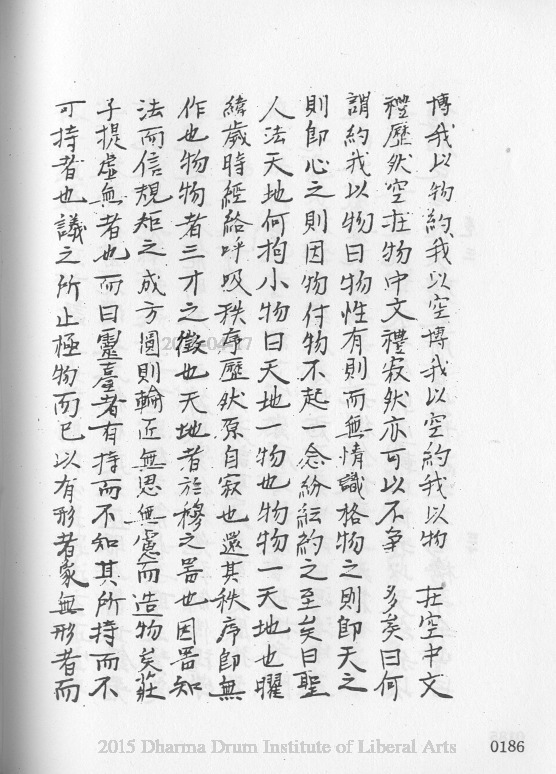 博我以物約我以空博我以空約我以物　在空中文
禮歷然空在物中文禮寂然亦可以不爭　多矣曰何
謂約我以物曰物性有則而無情識格物之則即天之
則即心之則因物付物不起一念紛紜約之至矣曰聖
人法天地何拘小物曰天地一物也物物一天地也曜
緯歲時經給呼吸秩序歷然原自寂也還其秩序即無
作也物物者三才之徵也天地者於穆之噐也因噐知
法而信規矩之成方圓則輪匠無思無慮而造物矣莊
子提虛無者也而曰靈臺者有持而不知其所持而不
可持者也議之所止極物而已以有形者象無形者而
2015 Dharma Drum Institute of Liberal Arts
0186